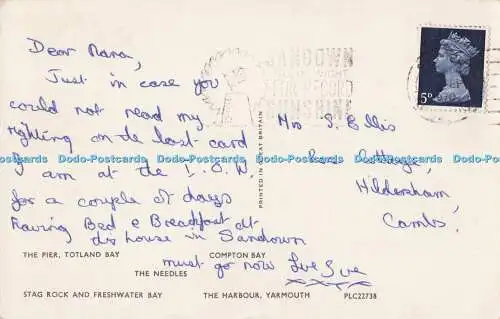 Dear Nana,
Just in case you
could not read my
righting on the last card
I am at the I.O.W.
for a couple of days
having Bed & Breakfast at
house in Sandown
must go now love Sue
xxxx
SANDOWN
ISLE OF WIGHT
FOR RECORD
SUNSHINE
5D
Mrs S. Ellis
Cottage,
Hildersham,
Cambs,
PRINTED IN GREAT BRITAIN
Dodo-Postcards Dodo-Postcards Dodo-Postcards Dodo-Postcards Dodo-Postcards Dodo-Postcards
THE PIER, TOTLAND BAY
COMPTON BAY
THE NEEDLES
STAG ROCK AND FRESHWATER BAY
THE HARBOUR, YARMOUTH
PLC22738